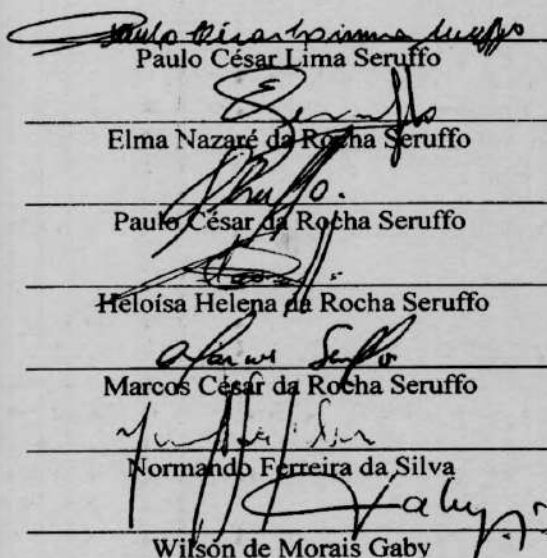 Paulo César Lima Seruffo
Seruffo
Elma Nazaré da Rocha Seruffo
Paulo César da Rocha Seruffo
Heloísa Helena da Rocha Seruffo
Marcos Seruffo
Marcos César da Rocha Seruffo
Normando Ferreira da Silva
Gaby
Wilson de Morais Gaby